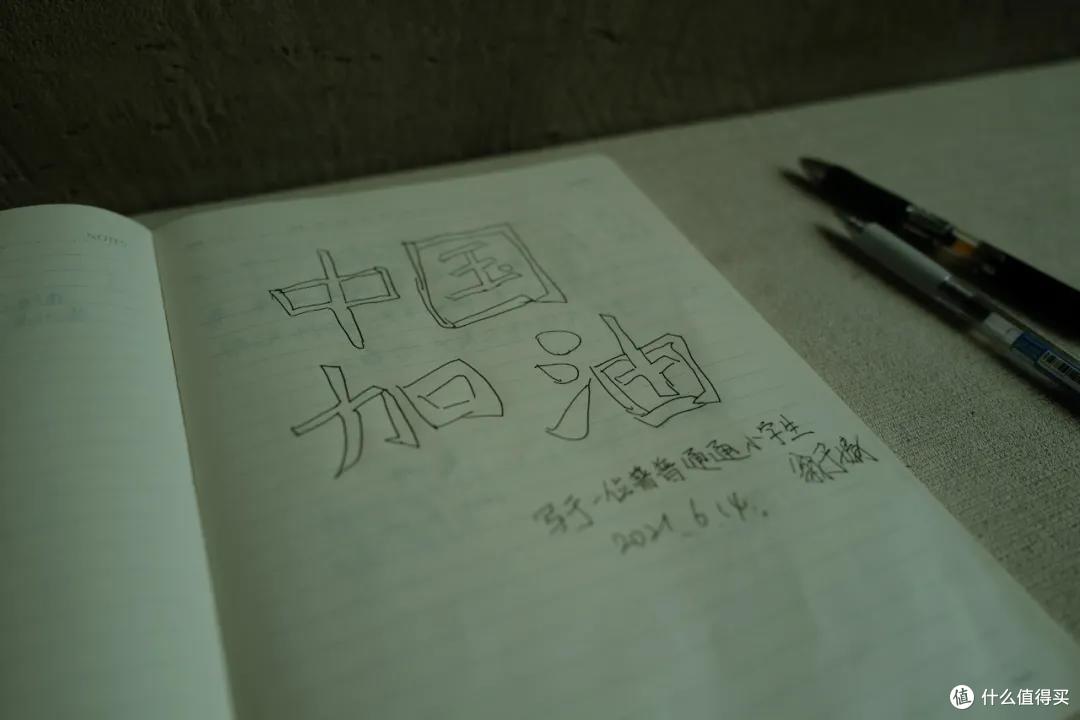 NOTES
中国
加油
写于一位普普通通小学生
2021.6.14.
值 什么值得买